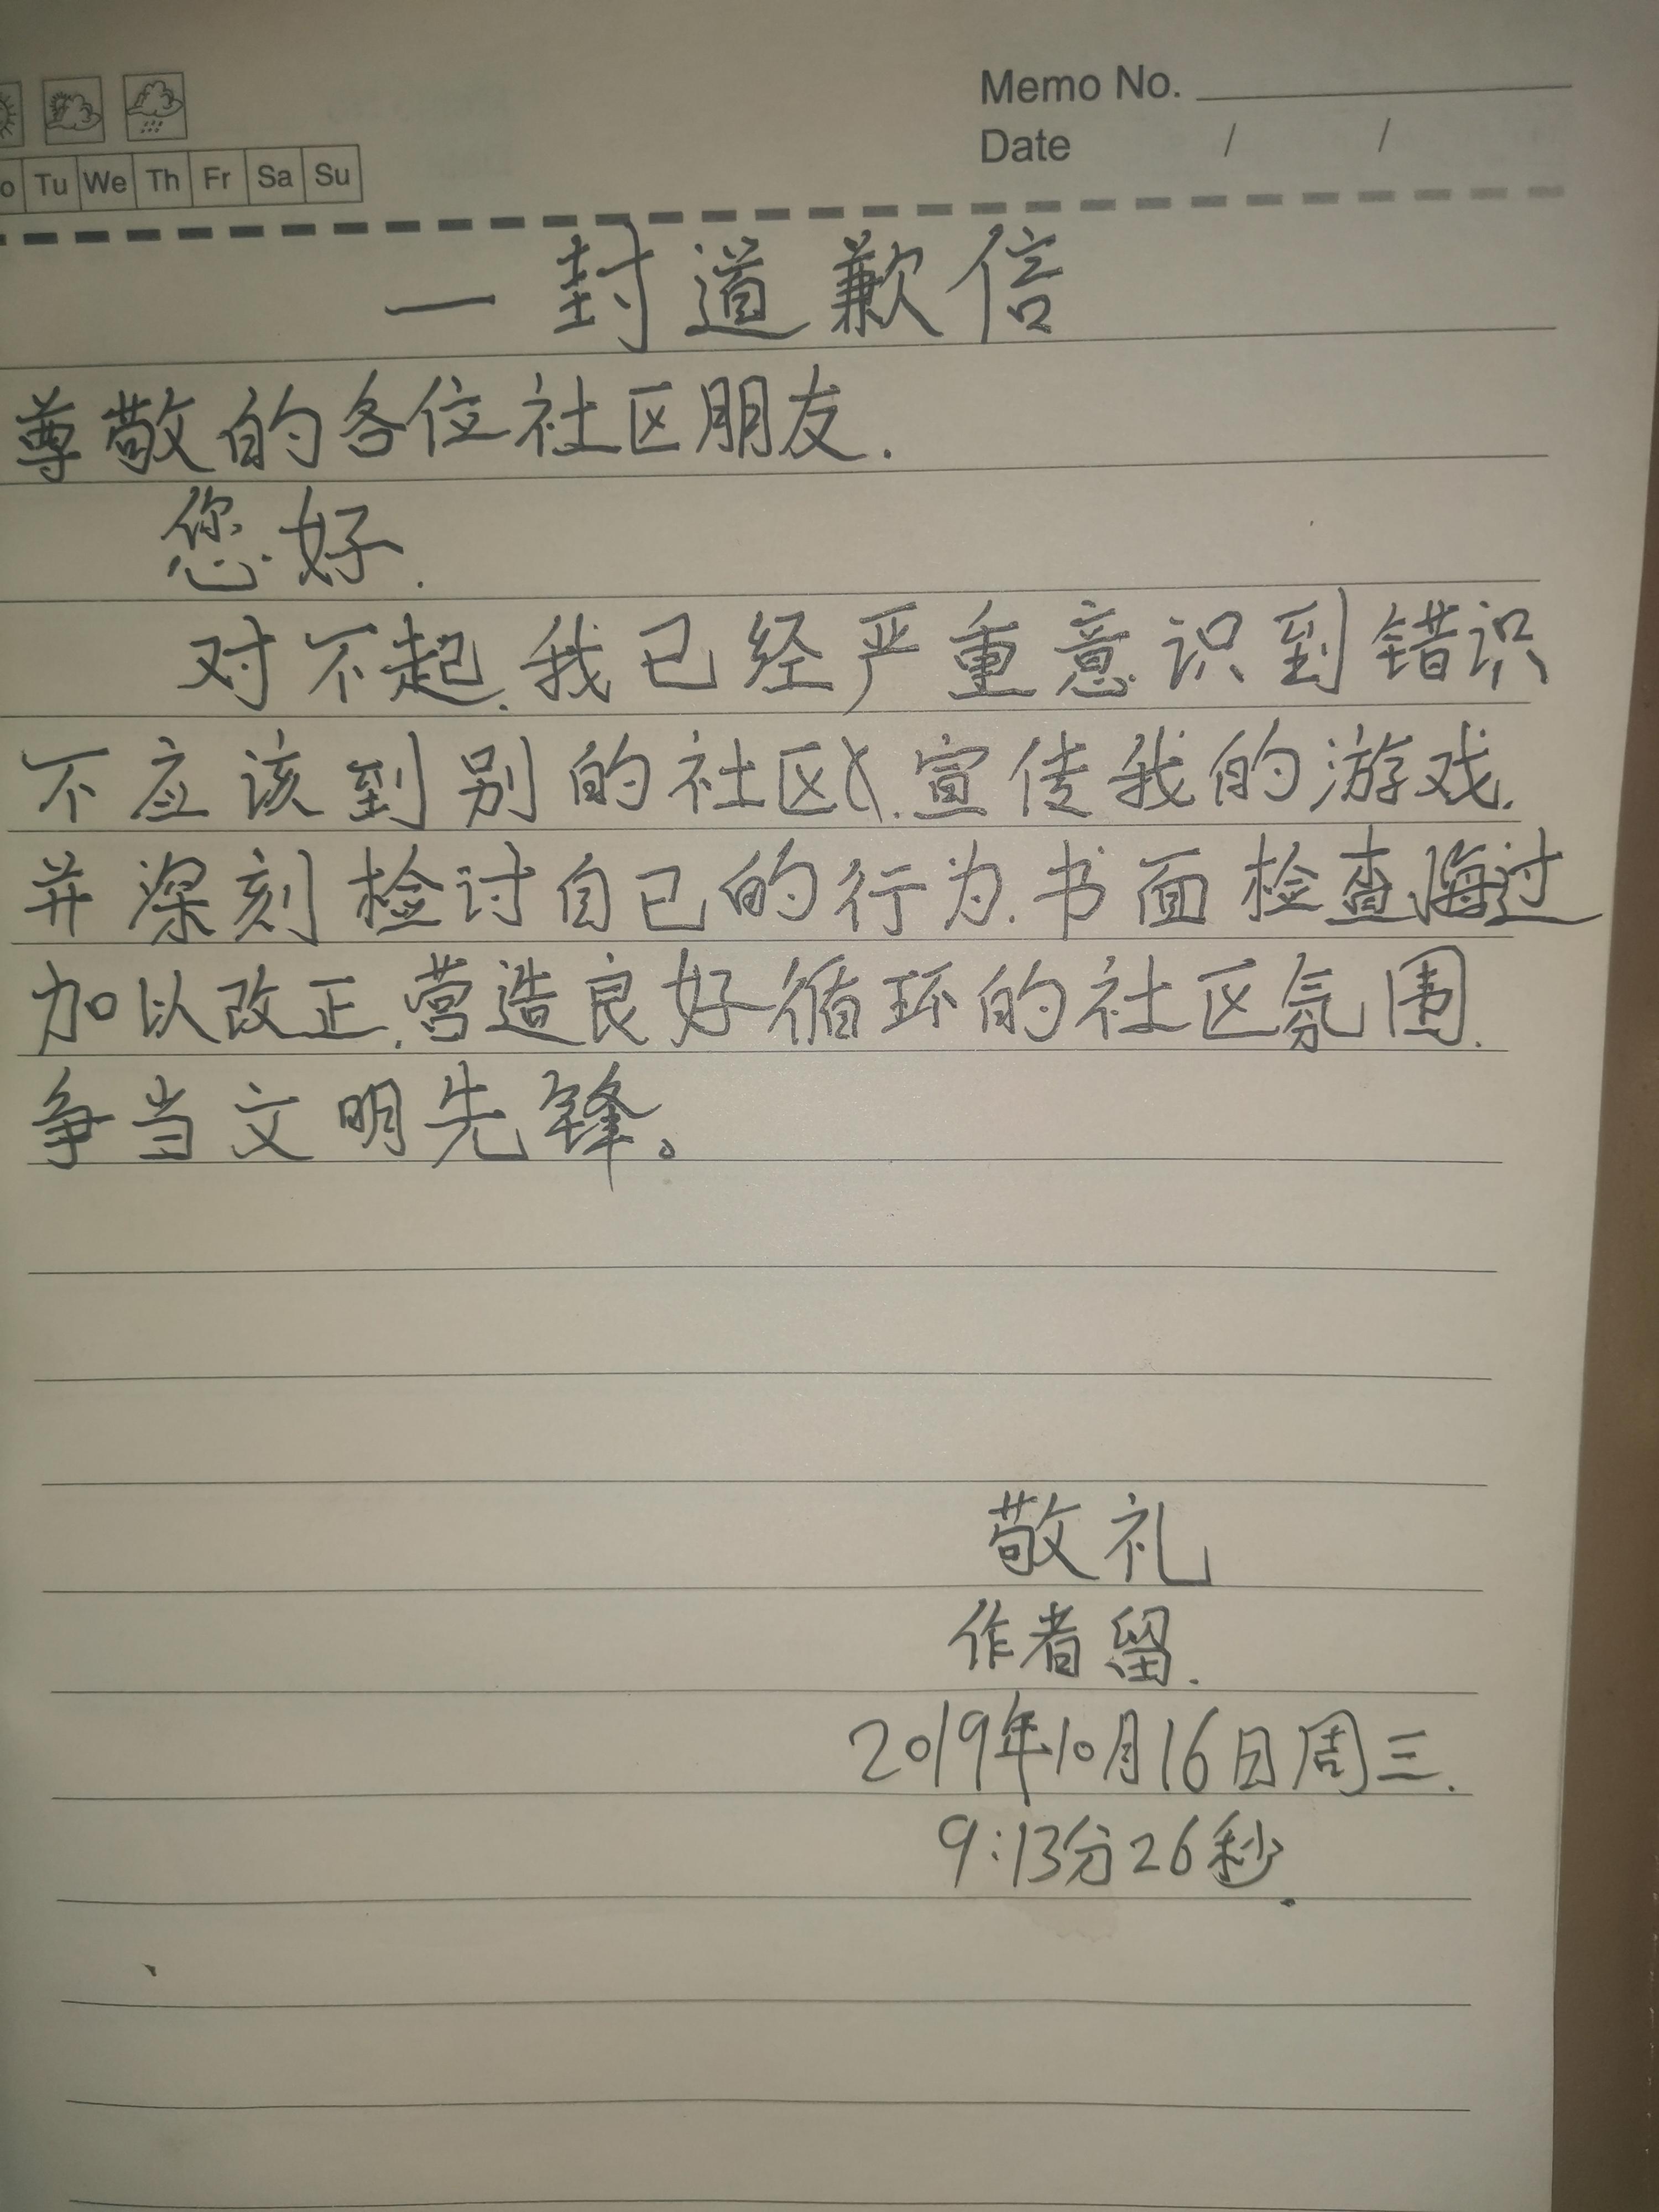 Memo No.
Date / /
o Tu We Th Fr Sa Su
一封道歉信
尊敬的各位社区朋友.
您好.
对不起.我已经严重意识到错识
不应该到别的社区.宣传我的游戏.
并深刻检讨自已的行为.书面检查悔过
加以改正.营造良好循环的社区氛围.
争当文明先锋。
敬礼
作者留.
2019年10月16日周三.
9:13分26秒.